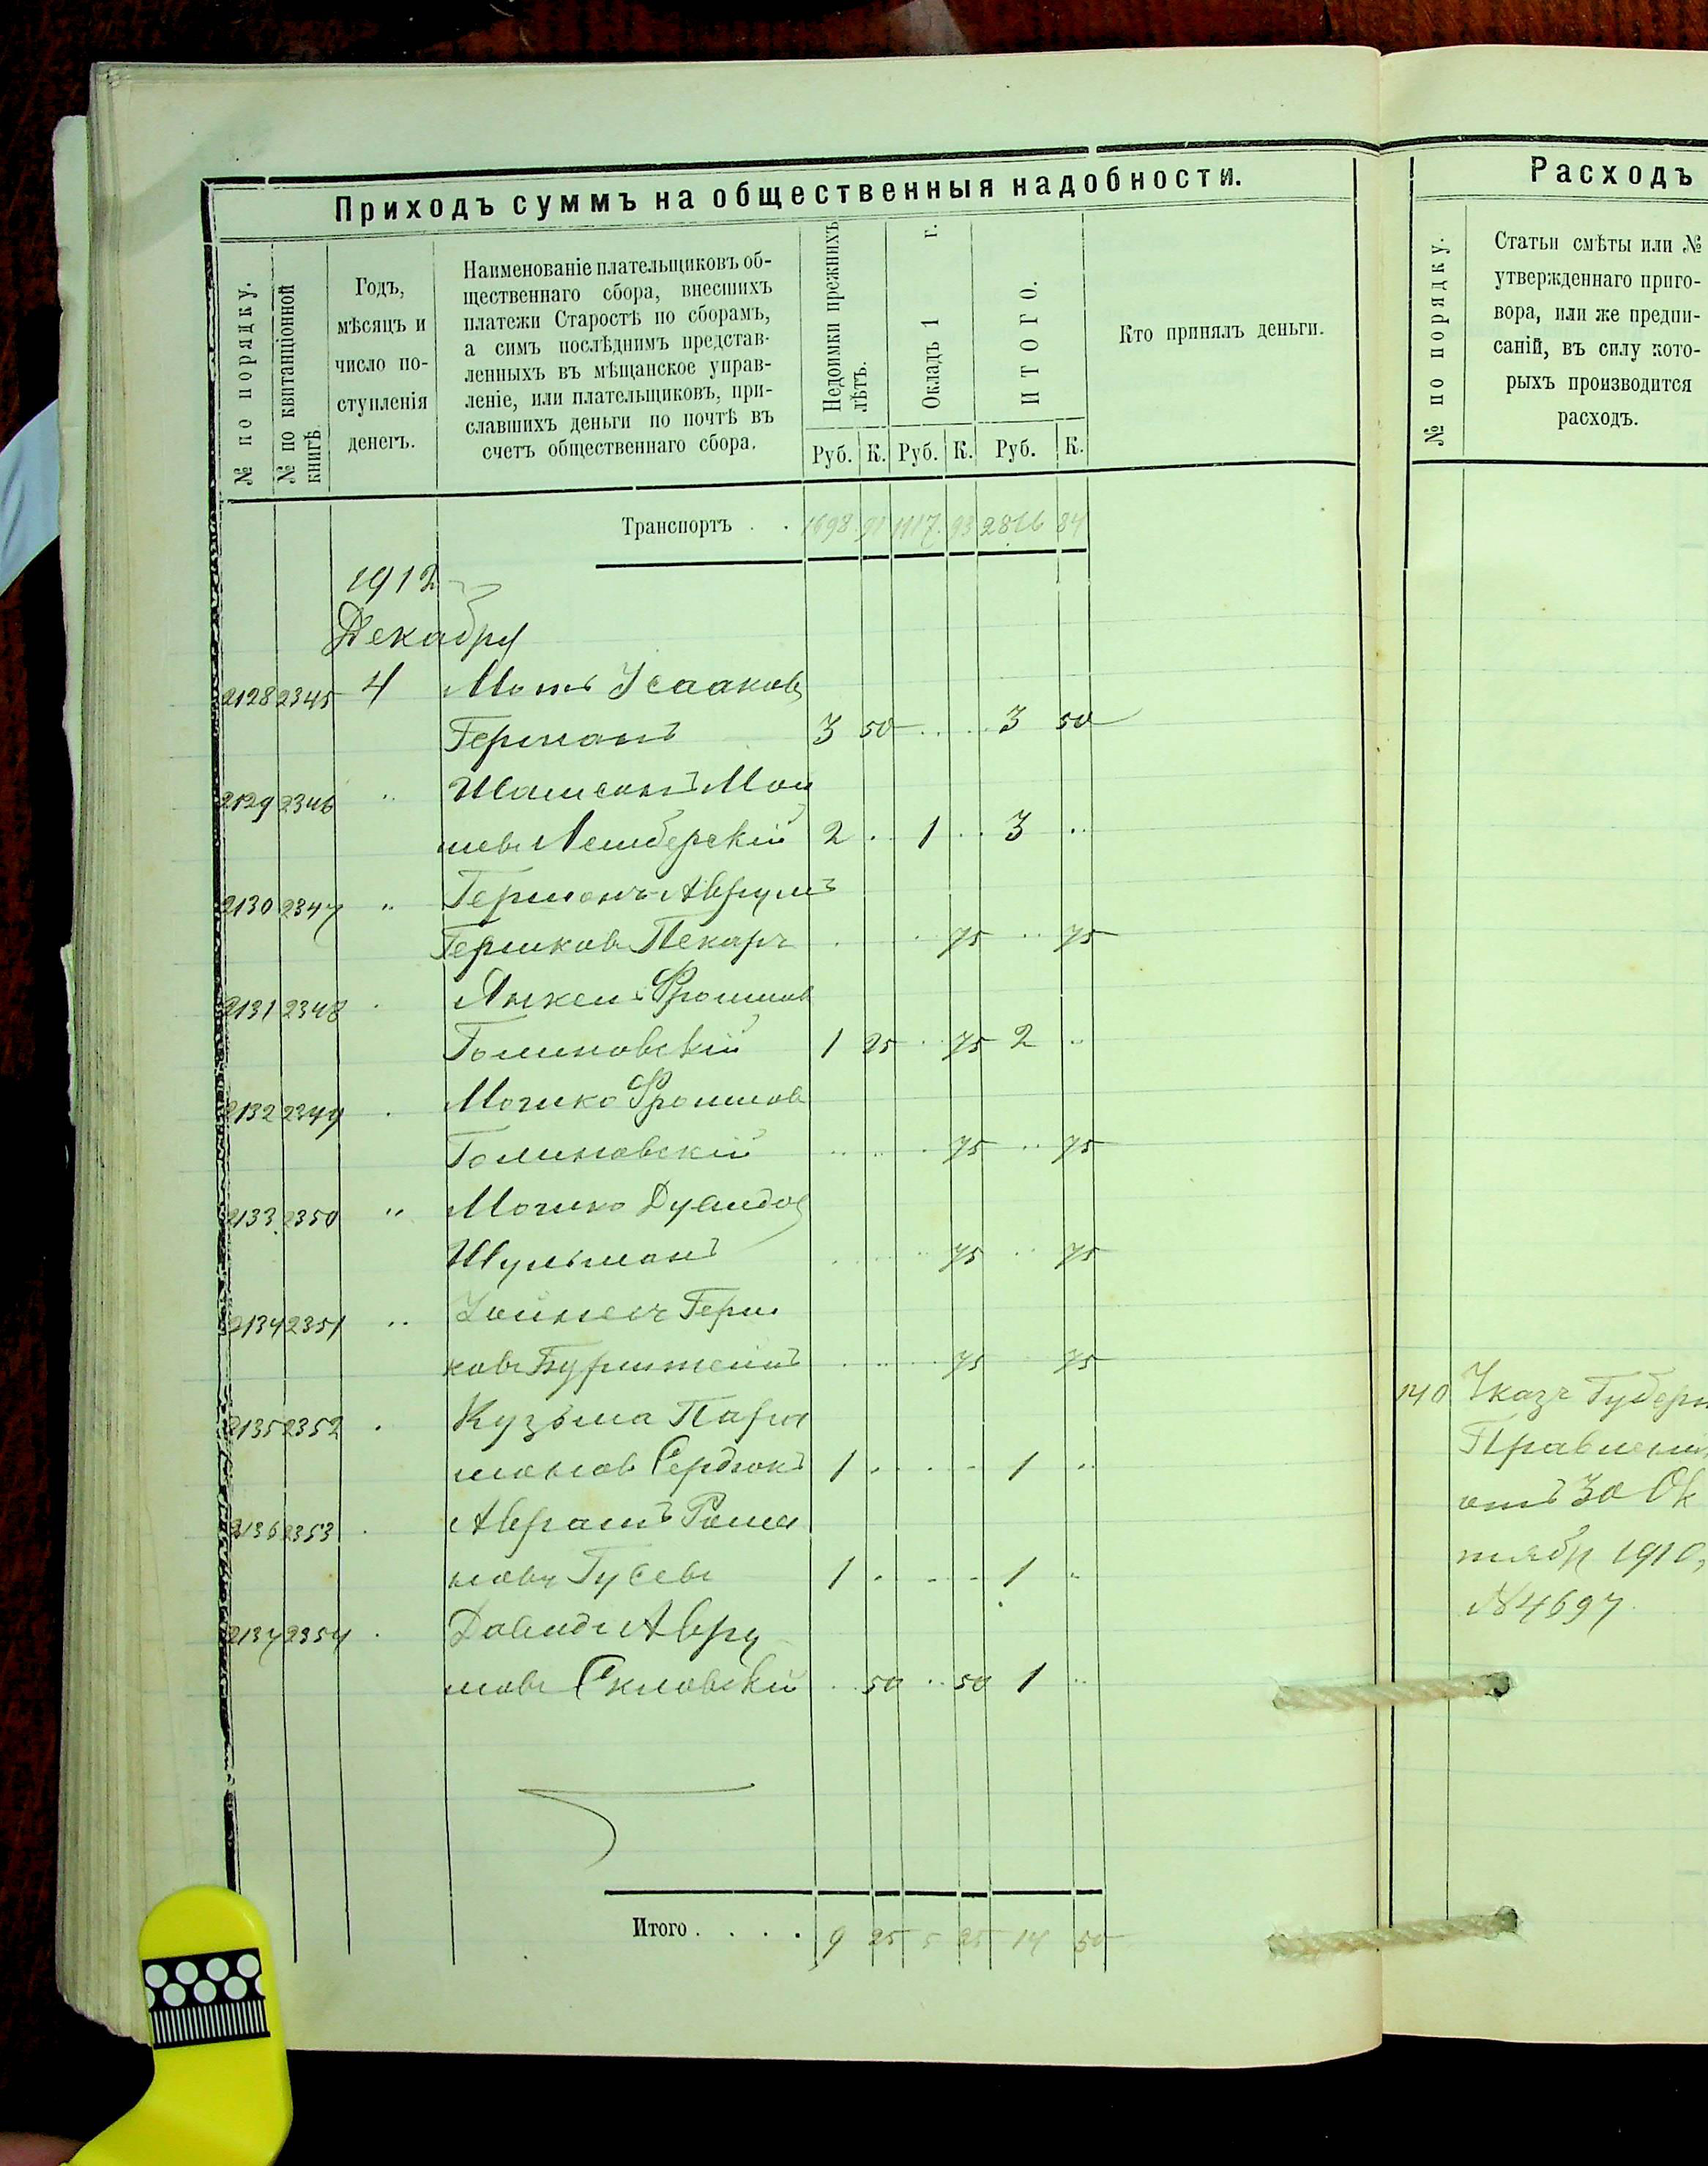 Приходъ суммъ на общественныя надобности.
№ по порядку.
№ по квитанціонной
книгѣ.
Годъ,
мѣсяцъ и
число по-
ступленія
денегъ.
Наименованіе плательщиковъ об-
щественнаго сбора, внесшихъ
платежи Старостѣ по сборамъ,
а симъ послѣднимъ представ-
ленныхъ въ мѣщанское управ-
леніе, или плательщиковъ, при-
славшихъ деньги по почтѣ въ
счетъ общественнаго сбора.
Недоимки прежнихъ
лѣтъ.
Окладъ 1 г.
ИТОГО.
Руб. К. Руб. К. Руб. К.
Кто принялъ деньги.
Транспортъ . . 1698 91 1117 93 2816 84
1912
Декабря
2128 2345 4 Исааковъ
Германъ 3 50 .. .. 3 50
2129 2346 " Шамсонъ Мош
ковъ Лемберскій 2 . 1 .. 3 ..
2130 2347 " Авրумъ
Гершковъ Пекарь . . . 75 .. 75
2131 2348 . Янкель Фроимов
Голиковскій 1 25 .. 75 2 ..
2132 2349 . Мошко Фроимов
Голиковскій .. .. . 75 .. 75
2133 2350 " Мошко Дувидов
Шульманъ . . . 75 .. 75
2134 2351 .. Герш
ковъ Бурштейнъ . .. . 75 75
2135 2352 . Кузьма Парф
Сердюкъ 1 . . . - 1 ..
2136 2353 . Аврамъ Рома
новъ Гусевъ 1 . . - - 1 ..
2137 2354 . Давидъ Авру
мовъ Скловскій . 50 .. 50 1 ..
Итого . . . . 9 25 5 25 14 50
Расходъ
№ по порядку.
Статьи смѣты или №
утвержденнаго приго-
вора, или же предпи-
саній, въ силу кото-
рыхъ производится
расходъ.
140 Указъ Губерн
Правленія
отъ 30 Ок
тябр 1910,
№ 4697